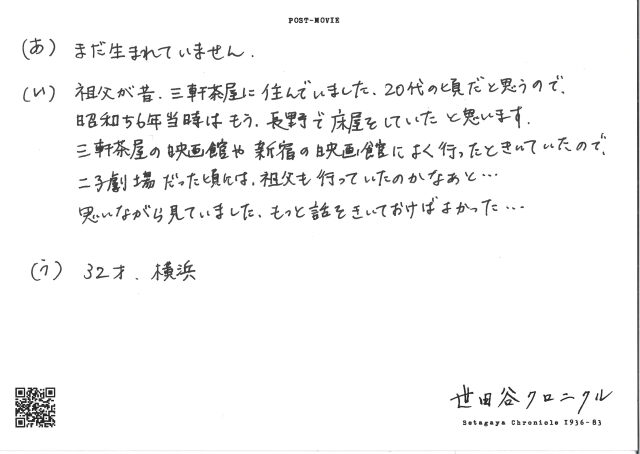 POST-MOVIE
(あ) まだ生まれていません.
(い) 祖父が昔、三軒茶屋に住んでいました、20代の頃だと思うので、
昭和56年当時はもう、長野で床屋をしていたと思います.
三軒茶屋の映画館や新宿の映画館によく行ったときいていたので、
二子劇場だった頃には、祖父も行っていたのかなぁと…
思いながら見ていました、もっと話をきいておけばよかった…
(う) 32才、横浜
世田谷クロニクル
Setagaya Chronicle 1936-83